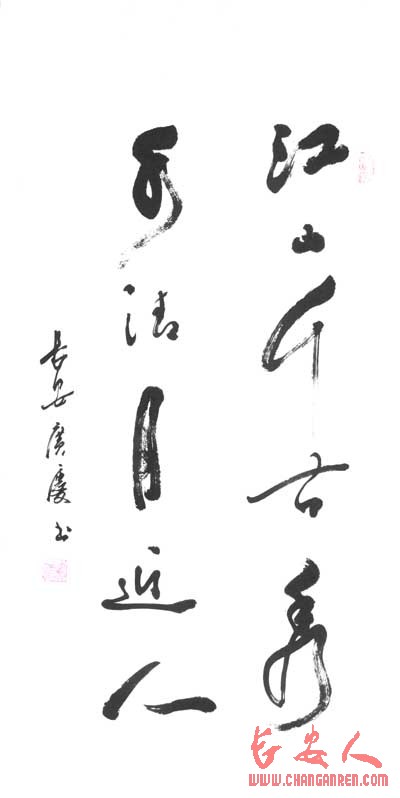 江山千古秀
清月近人
长安廣慶书
长安人
WWW.CHANGANREN.COM